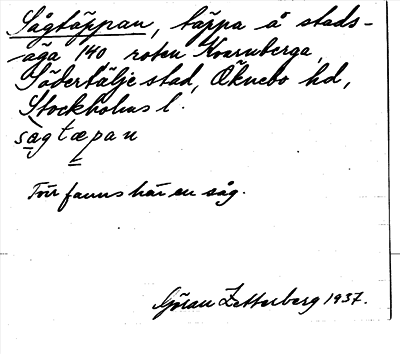 Sågtäppan, täppa å stads-
äga 140 roten Kvarnberga,
Södertälje stad, Öknebo hd,
Stockholms l.
sågtæpan
Förr fanns här en såg.
Göran Zetterberg 1937.